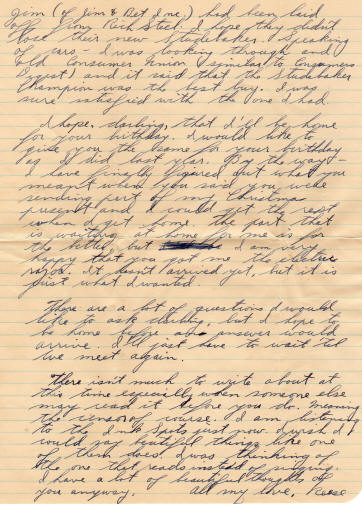 Jim (of Jim & Bet Inc.) had been laid
off from Rich Steel. I hope they didn't
lose their new Studebaker. Speaking
of cars - I was looking though and
old Consumer Union (similar to Consumers
Digest) and it said that the Studebaker
Champion was the best buy. I was
sure satisfied with the one I had.
I hope, darling, that I'll be home
for your birthday. I would like to
give you the same for your birthday
as I did last year. By the way -
I have finally figured out what you
meant when you said you were
sending part of my Christmas
present and I could get the rest
when I get home. The part that
is waiting at home for me is for
the better, but I am very
happy that you got me the electric
razor. It hasn't arrived yet, but it is
just what I wanted.
There are a lot of questions I would
like to ask darling, but I hope to
be home before answer would
arrive. I'll just have to wait 'til
we meet again.
There isn't much to write about at
this time especially when someone else
may read it before you do. Meaning
the censor of course. I am listening
to the Ink Spots just now. I wish I
could say beautiful things like one
of them does. I was thinking of
the one that reads instead of singing.
I have a lot of beautiful thoughts of
you anyway. All my love, Reese